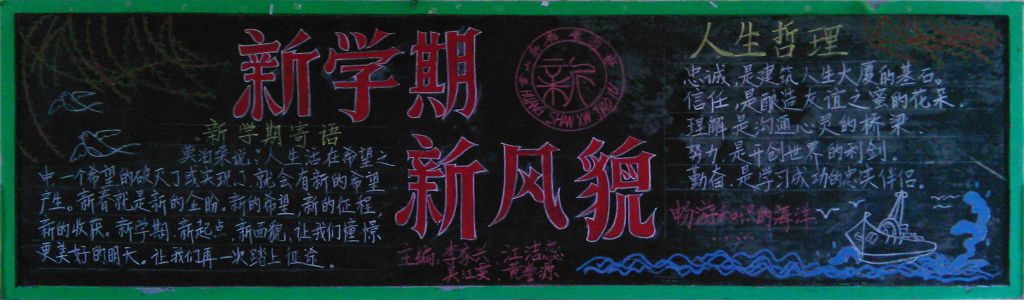 新学期
新风貌
新学期寄语
英泊来说：人生活在希望之
中一个希望的破灭了或实现了，就会有新的希望
产生。新春就是新的企盼。新的希望，新的征程，
新的收获。新学期，新起点，新面貌，让我们憧憬
更美好的明天。让我们再一次踏上征途。
主编：李家兴 汪洁蕊
HUANG SHAN XIN
人生哲理
忠诚，是建筑人生大厦的基石。
信任，是酿造友谊之蜜的花朵。
理解是沟通心灵的桥梁.
努力，是开创世界的利剑。
勤奋，是学习成功的忠实伴侣。
畅游知识的海洋